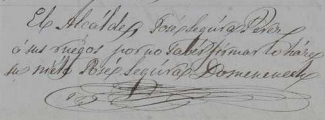 El Alcalde José Segura Perez
á sus ruegos por no saber firmar lo hace
su nieto José Segura Domenench